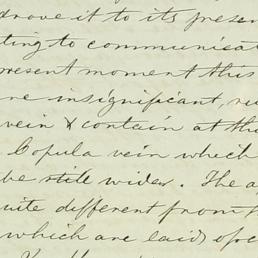 drove it to its presen
ting to communicat
present moment this
re insignificant,
vein & contain at the
Copula vein which
be still wider. The a
uite different from
which are laid open